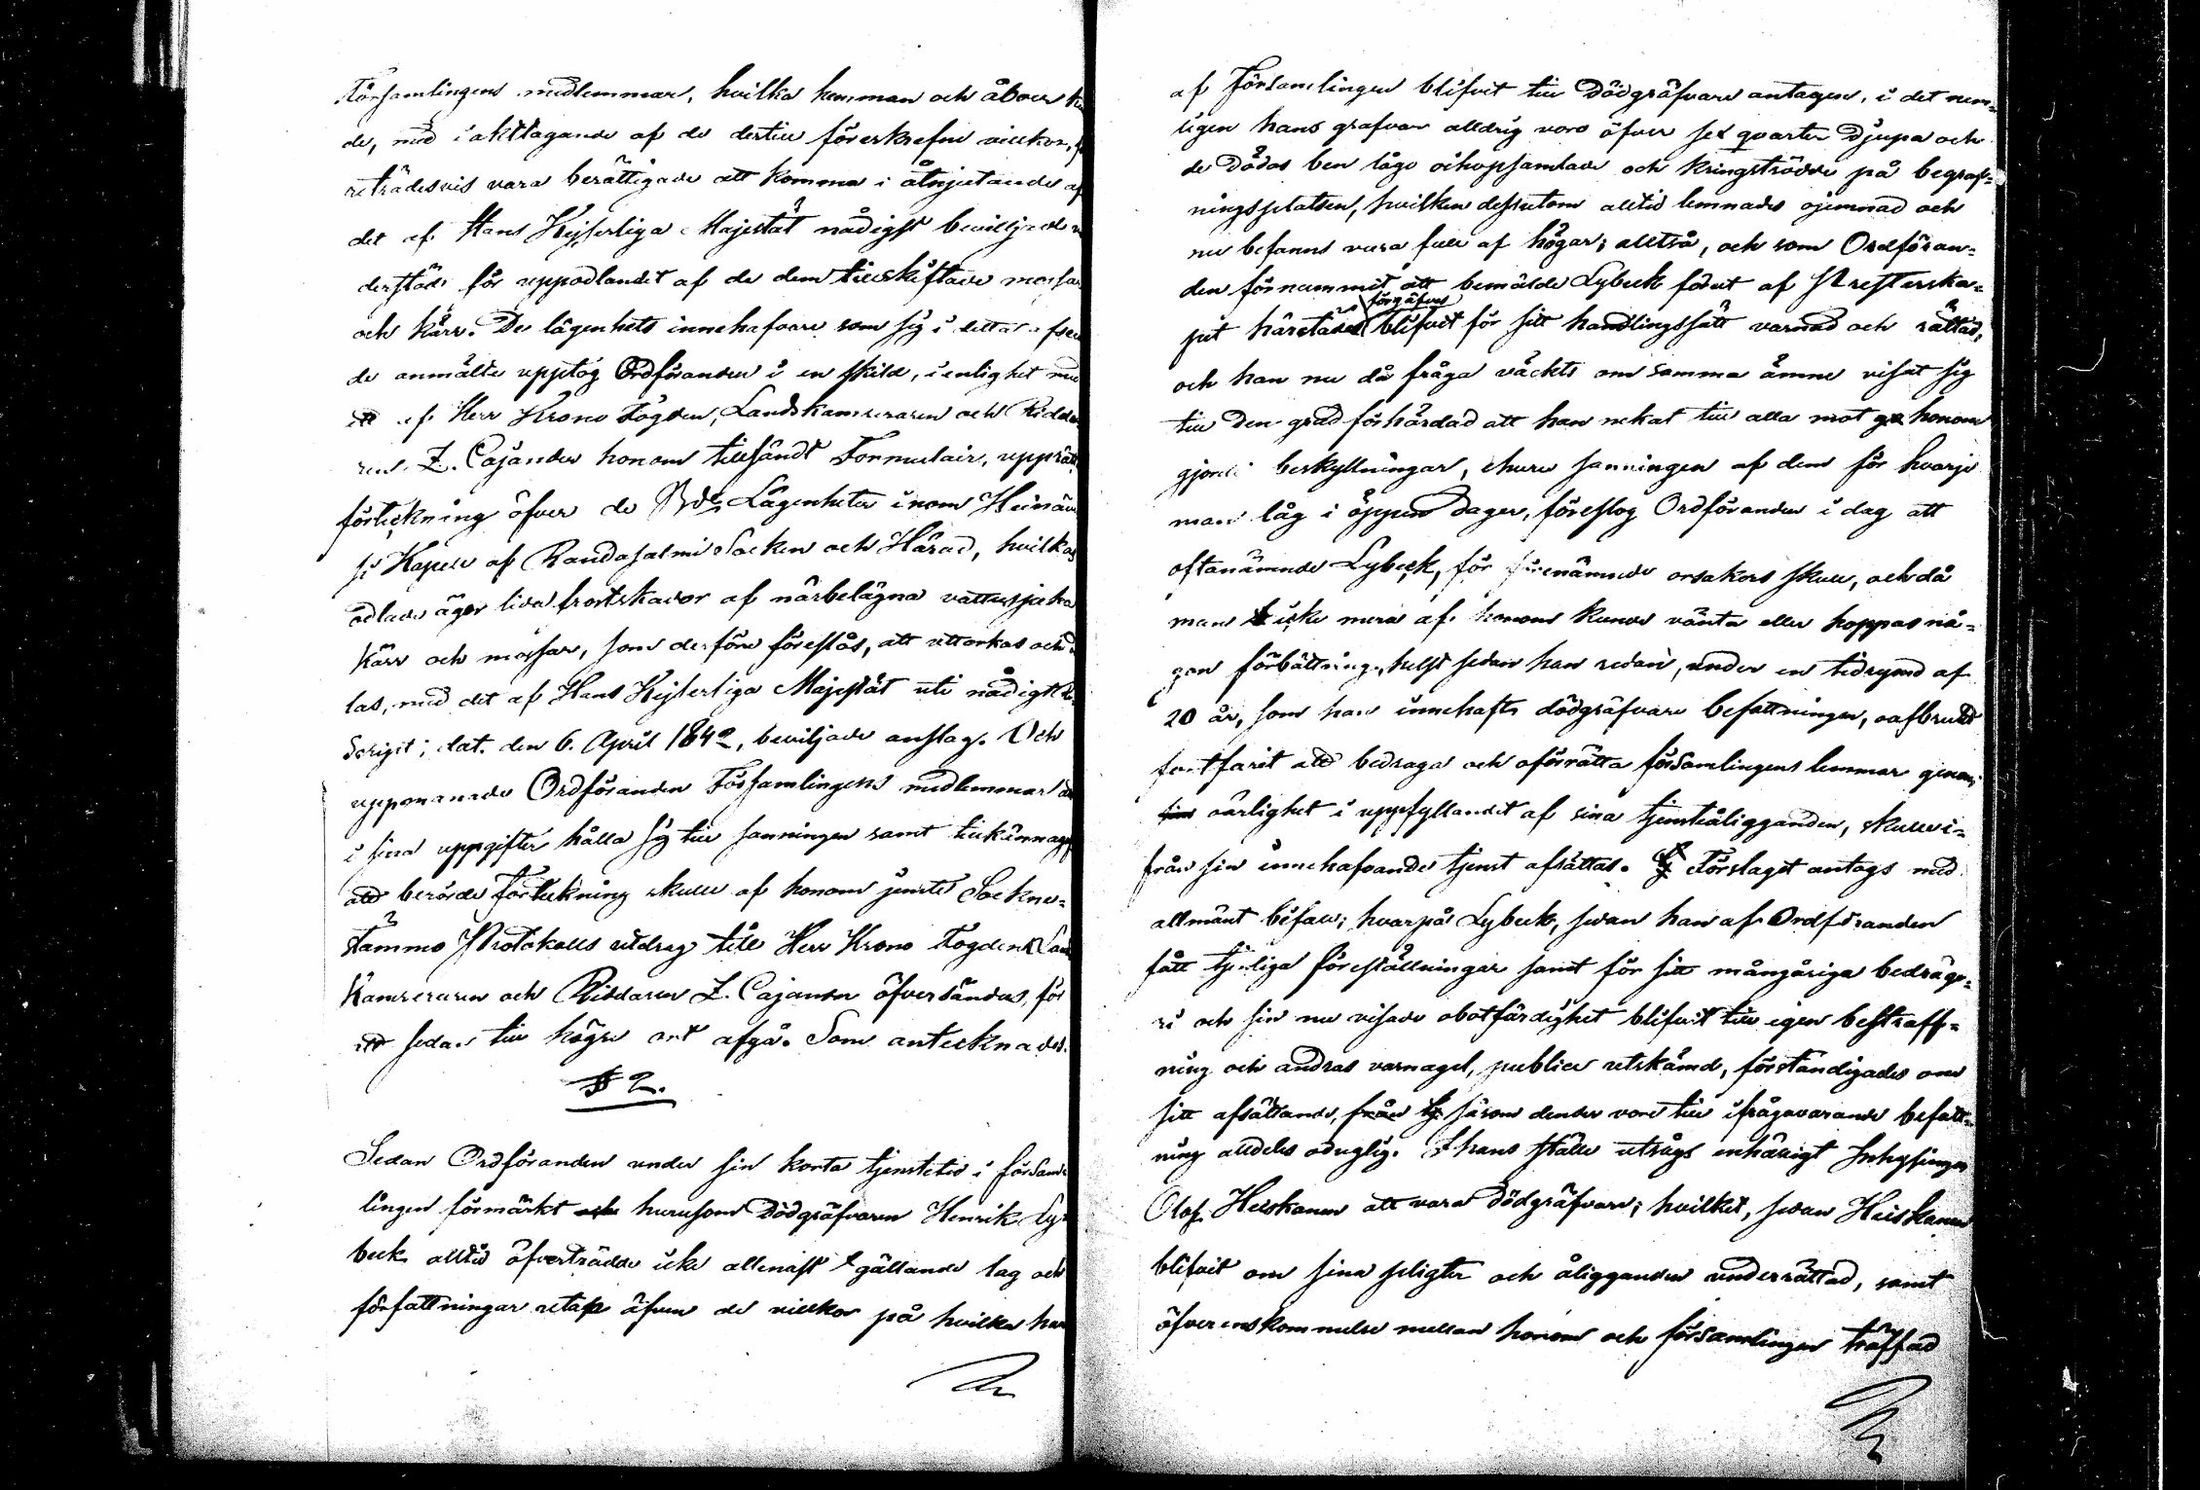 Församlingens medlemmar, hvilka hemman och åboer
de, med iakttagande af de dertill föreskrefne villkor,
reträdesvis vara berättigade att komma i åtnjutande af
det af Hans Kejserliga Majestät nådigst beviljade
derstöd för uppodlandet af de dem tillskiftade mossar
och kärr. De lägenhets innehafvare som sig i detta afseen
de anmälte upptog Ordföranden i en skild, i enlighet med
ett af Herr Krono Fogden, Landskamreraren och Ridda
ren Z. Cajander honom tillsändt Formulair, upprät
förteckning öfver de Lägenheter inom Heinäve
si Kapell af Randasalmi Socken och Härad, hvilkas
odlade ägor lida frostskador af närbelägna vattusjuka
kärr och mossar, som derföre föreslås, att uttorkas och
las, med det af Hans Kejserliga Majestät uti nådigt Re
script, dat. den 6. April 1842, beviljade anslag. Och
uppmanade Ordföranden Församlingens medlemmar att
i sina uppgifter hålla sig till sanningen samt tillkännagaf
att berörde Förteckning skulle af honom jemte Sockne-
stämmo Protokolls utdrag till Herr Krono Fogden Lands
Kamreraren och Riddaren Z. Cajander öfversändas, för
att sedan till högre ort afgå. Som antecknades.
§ 2.
Sedan Ordföranden under sin korta tjenstetid i försam
lingen förmärkt hurusom Dödgräfvaren Henrik Ly-
beck alltid öfverträdde icke allenast gällande lag och
författningar utan äfven de villkor på hvilka han
af Församlingen blifvit till Dödgräfvare antagen, i det nem-
ligen hans grafvar alldrig voro öfver sex qvarter djupa och
de Dödas ben lågo oihopsamlade och kringströdde på begraf-
ningsplatsen, hvilken dessutom alltid lemnades ojemnad och
nu befanns vara full af högar; alltså, och som Ordföran-
den förnummit, att bemälde Lybeck förut af Presterska-
förgäfves
pet härstädes blifvit för sitt handlingssätt varnad och rättad,
och han nu då fråga väckts om samma ämne visat sig
till den grad förhärdad att han nekat till alla mot honom
gjorde beskyllningar, ehuru sanningen af dem för hvarje
man låg i öppen dager, föreslog Ordföranden i dag att
oftanämnde Lybeck, för förenämnde orsakers skull, och då
man icke mera af honom kunde vänta eller hoppas nå-
gon förbättring, helst sedan han redan, under en tidrymd af
20 år, som han innehaft dödgräfvare befattningen, oafbrutet
fortfarit att bedraga och oförrätta församlingens lemmar genom
oärlighet i uppfyllandet af sina tjensteåligganden, skulle i-
från sin innehafvande tjenst afsättas. Förslaget antogs med
allmänt bifall; hvarpå Lybeck, sedan han af Ordföranden
fått tjenliga föreställningar samt för sitt mångåriga bedräge-
ri och sin nu visade obotfärdighet blifvit till egen bestraff-
ning och andras varnagel, publice utskämd, förständigades om
sitt afsättande, från såsom dender vore till ifrågavarande befatt-
ning alldeles oduglig. I hans ställe utsågs enhälligt Inhysingen
Olof Heiskanen att vara Dödgräfvare; hvilket, sedan Heiskanen
blifvit om sina pligter och åligganden underrättad, samt
öfverenskommelse mellan honom och församlingen träffad